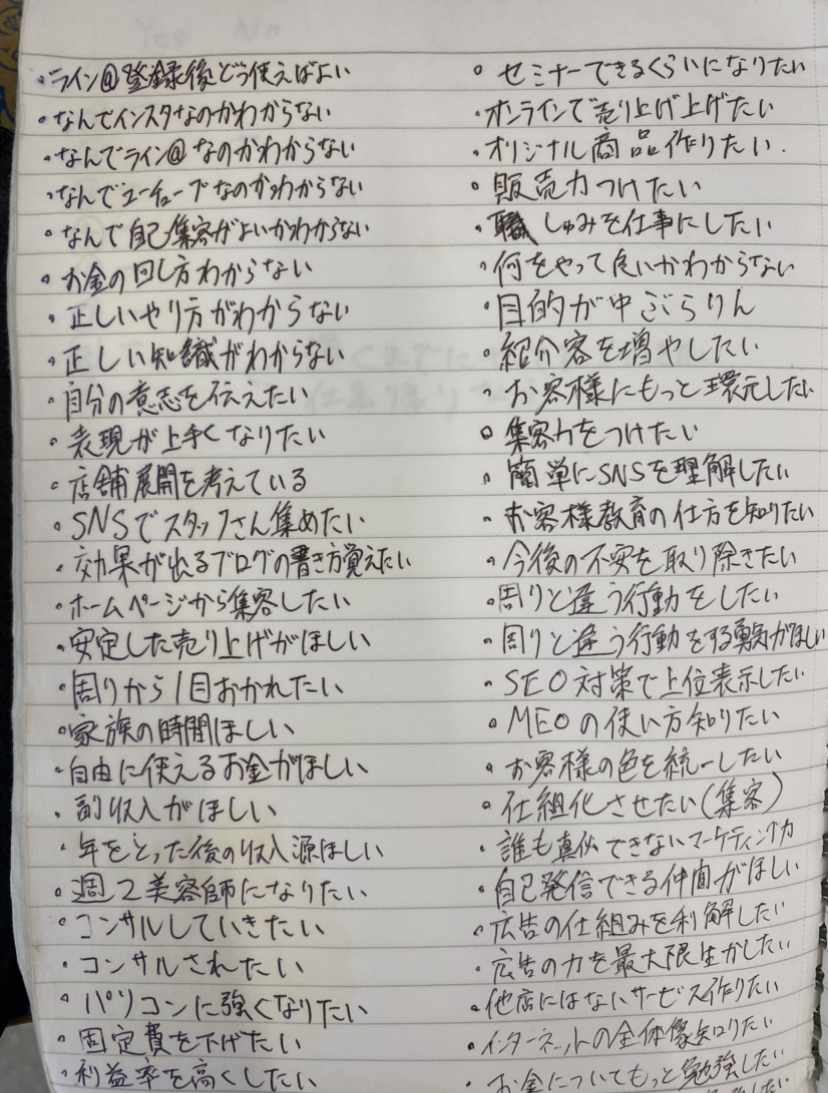 ・ライン@登録後どう使えばよい
・なんでインスタなのかわからない
・なんでライン@なのかわからない
・なんでユーチューブなのかわからない
・なんで自己集客がよいかわからない
・お金の回し方わからない
・正しいやり方がわからない
・正しい知識がわからない
・自分の意志を伝えたい
・表現が上手くなりたい
・店舗展開を考えている
・SNSでスタッフさん集めたい
・効果が出るブログの書き方覚えたい
・ホームページから集客したい
・安定した売り上げがほしい
・周りから1目おかれたい
・家族の時間ほしい
・自由に使えるお金がほしい
・副収入がほしい
・年をとった後の収入源ほしい
・週2美容師になりたい
・コンサルしていきたい
・コンサルされたい
・パソコンに強くなりたい
・固定費を下げたい
・利益率を高くしたい
・セミナーできるくらいになりたい
・オンラインで売り上げ上げたい
・オリジナル商品作りたい.
・販売力つけたい
・しゅみを仕事にしたい
・何をやって良いかわからない
・目的が中ぶらりん
・紹介客を増やしたい
・お客様にもっと環元したい
・集客力をつけたい
・簡単にSNSを理解したい
・お客様教育の仕方を知りたい
・今後の不安を取り除きたい
・周りと違う行動をしたい
・周りと違う行動をする勇気がほしい
・SEO対策で上位表示したい
・MEOの使い方知りたい
・お客様の色を統一したい
・仕組化させたい(集客)
・誰も真似できないマーケティング力
・自己発信できる仲間がほしい
・広告の仕組みを利解したい
・広告の力を最大限生かしたい
・他店にはないサービス作りたい
・インターネットの全体像知りたい
・お金についてもっと勉強したい